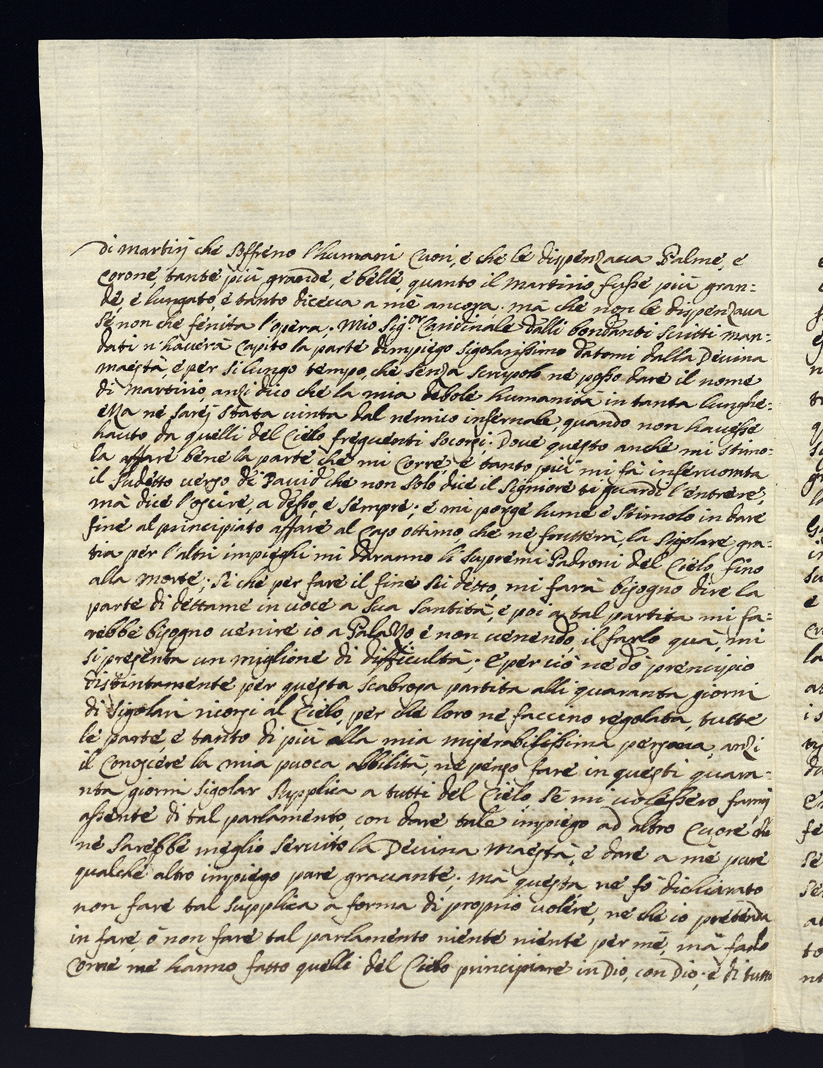 Di Martirij che Soffreno l'humani Cuori, e che le dispenzava Palme, e
Corone, tante più grande, e belle, quanto il Martirio fusse più gran=
de, e lungato, e tanto diceva a me ancora; mà che non le dispenzava
Se non che fenita l'opera. Mio Sig.or Cardinale dalli bondanti scritti man=
dati n'haverà Capito la parte d'impiego sigolarissimo datomi dalla Devina
maestà, e per si lungo tempo, che senza scrupolo ne posso dare il nome
di Martirio, anzi dico che la mia debole humanità in tanta lunghe=
ezza ne sarej stata vinta dal nemico infernale, quando non havesse
hauto da quelli del Cielo frequenti socorsi; Dove questo anche mi stimo=
la affare bene la parte che mi Corre, e tanto più mi fà infervorata
il sudetto verso de David che non solo dice il Signiore ti guardi l'entrere,
mà dice l'oscire, adesso, e sempre; e mi porge lume e stimolo in dare
fine al principiato affare al Caso ottimo, che ne frutterà, la sigolare gra=
tia per l'altri impieghi mi daranno li supremi Padroni del Cielo fino
alla morte; Si che per fare il fine su detto, mi farà bisogno dire la
parte di dettame in voce a Sua Santità, e poi a tal partita mi fa=
rebbe bisogno venire io a Palazzo e non venendo, il farlo quà, mi
si presenta un miglione di difficultà; e per ciò ne dò prencipio
distintamente per questa scabrosa partita alli quaranta giorni
di sigolari ricorsi al Cielo, per che loro ne faccino regolata, tutte
le parte, e tanto di più alla mia miserabilissima persona, anzi
il Conoscere la mia puoca abbilità, ne penso fare in questi quara=
nta giorni sigolar supplica a tutti del Cielo, Se mi volessero farmi
assente di tal parlamento, con dare tale impiego ad altro Cuore che
ne sarebbe meglio servito la Devina Maestà, e dare a me pure
qualche altro impiego pare gravante; Mà questa ne fò dichiarato
non fare tal supplica a forma di proprio volere, ne che io pretenda
in fare, ò non fare tal parlamento niente niente per me, mà farlo
Come me hanno fatto quelli del Cielo principiare in Dio, con Dio; e di tutto